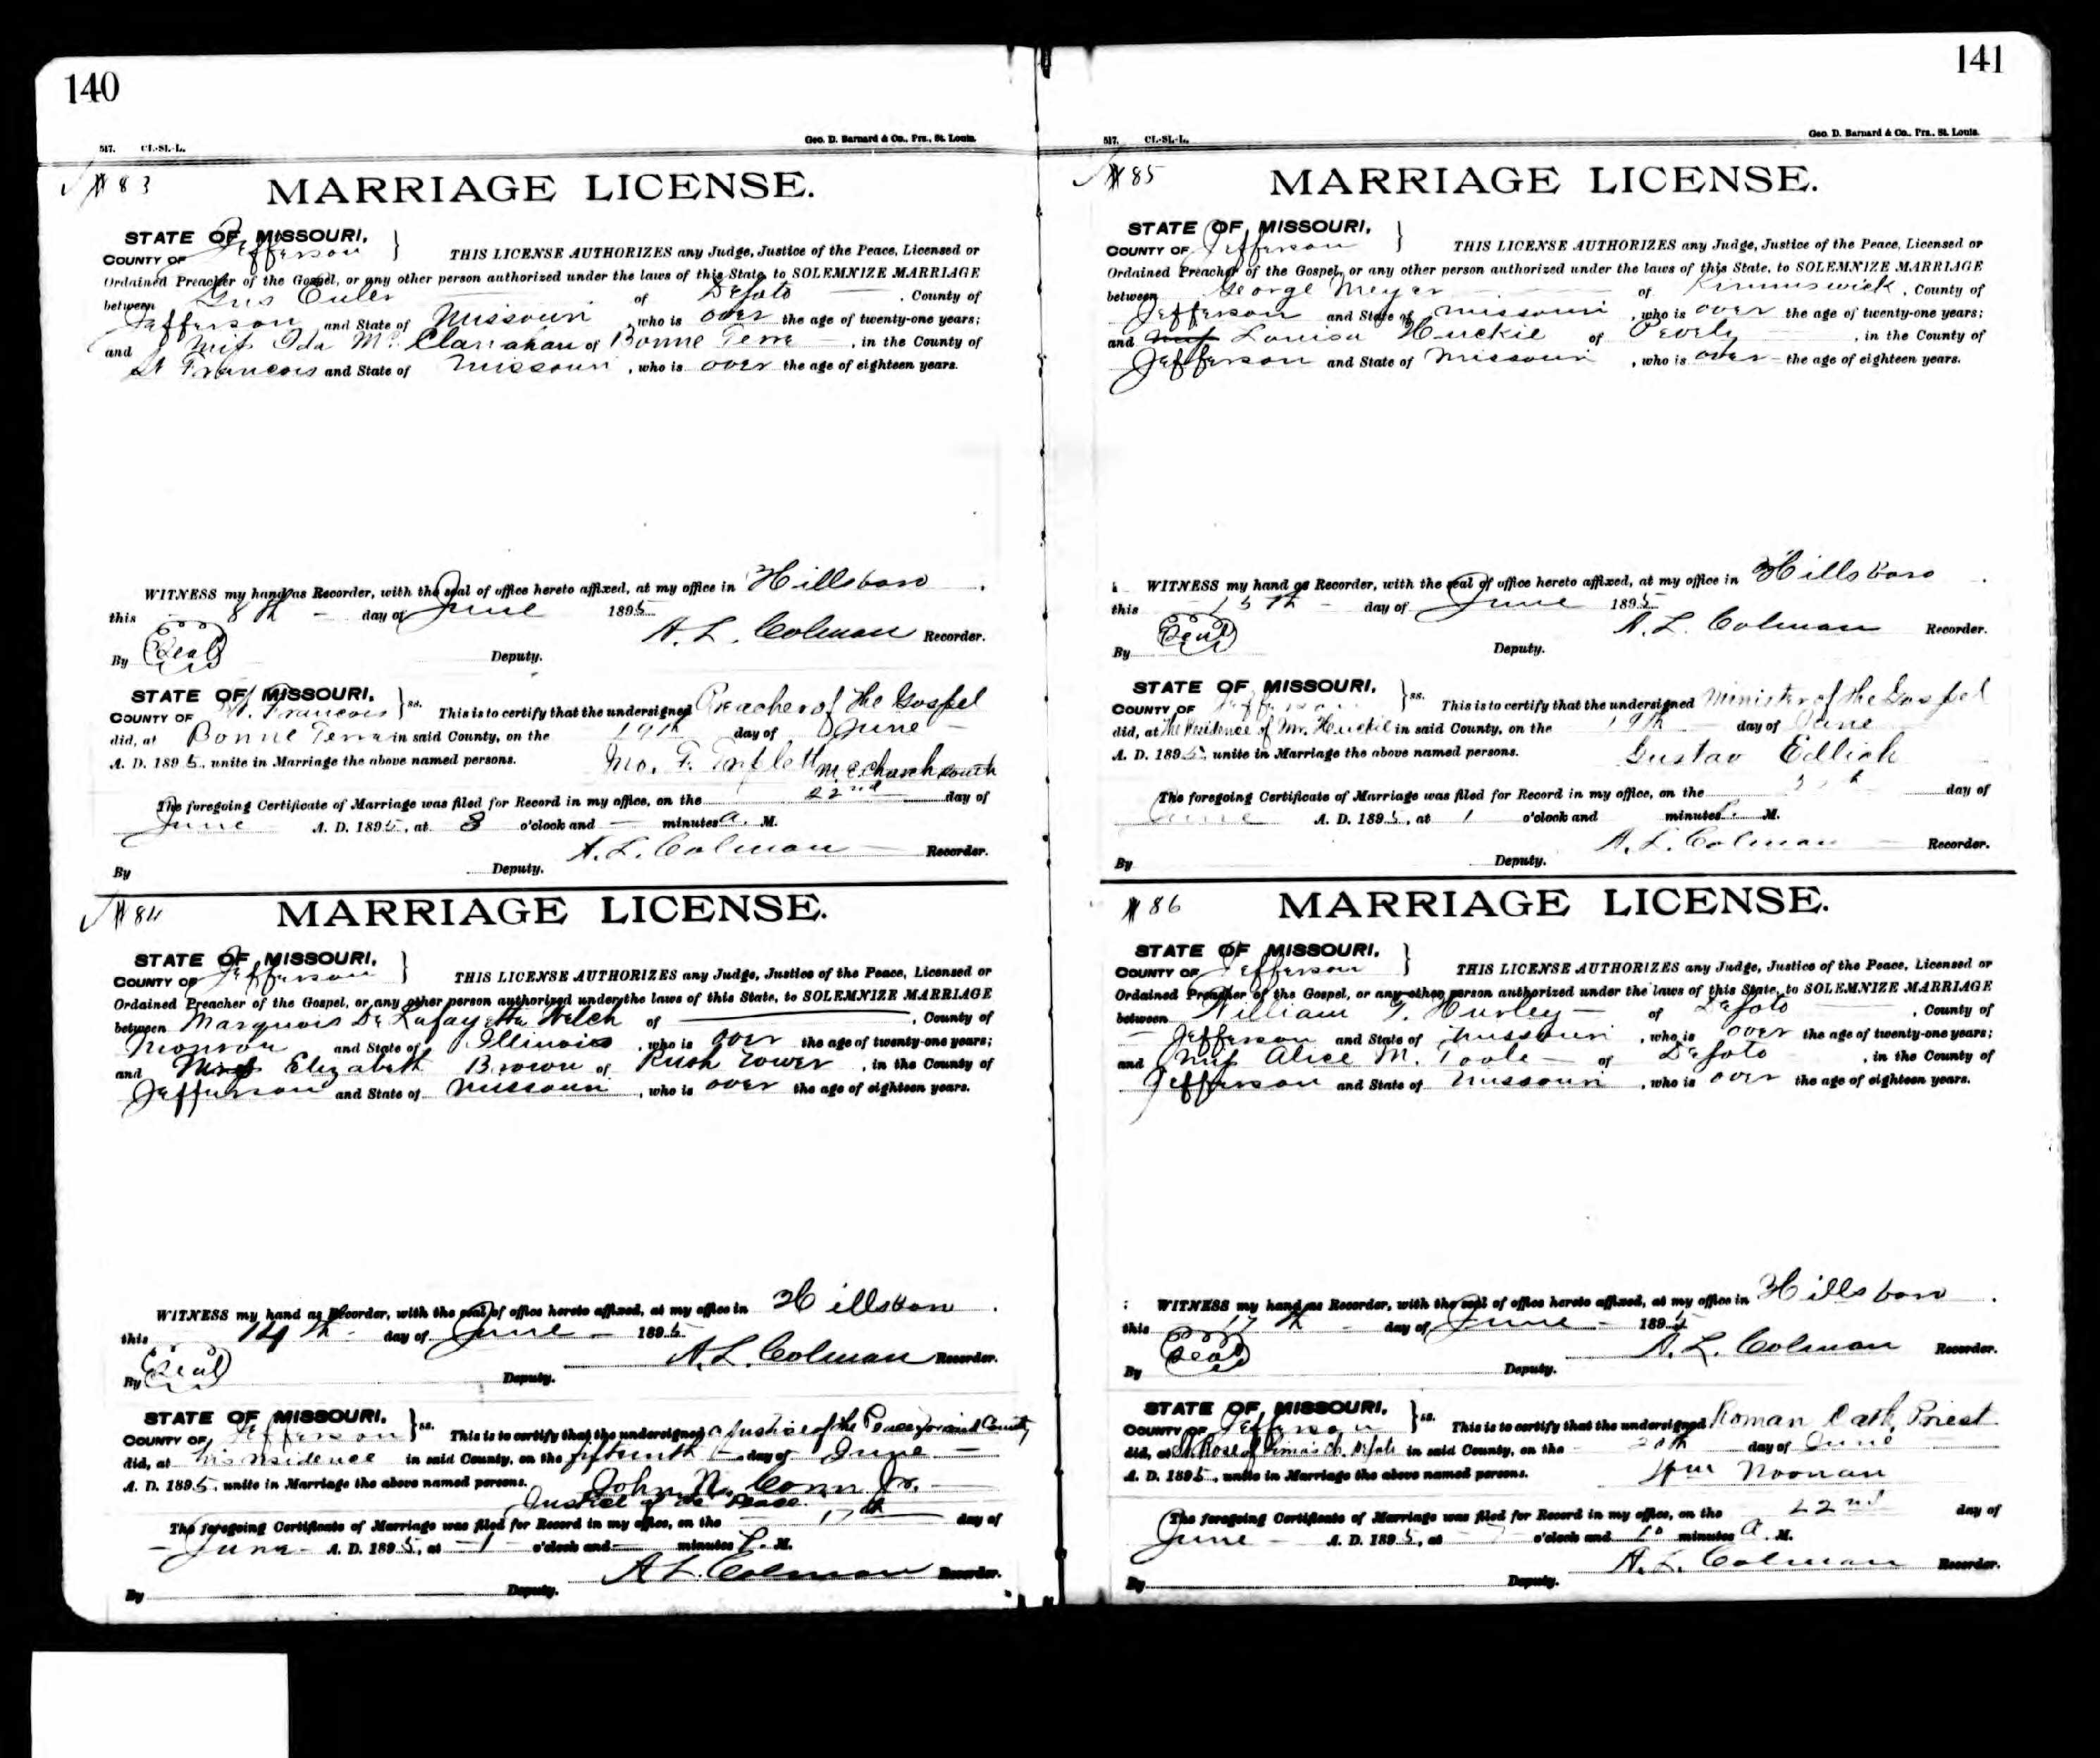 140
517. CI.-SI.-L.
Geo. D. Barnard & Co., Prs., St. Louis.
# 83
MARRIAGE LICENSE.
STATE OF MISSOURI,
COUNTY OF Jefferson
THIS LICENSE AUTHORIZES any Judge, Justice of the Peace, Licensed or
Ordained Preacher of the Gospel, or any other person authorized under the laws of this State, to SOLEMNIZE MARRIAGE
between Gus Euler of DeSoto, County of
Jefferson and State of Missouri, who is over the age of twenty-one years;
and Miss Ida Mc Clanahan of Bonne Terre, in the County of
St Francois and State of Missouri, who is over the age of eighteen years.
WITNESS my hand as Recorder, with the seal of office hereto affixed, at my office in Hillsboro.
this 8th day of June 1895
A. L. Colman Recorder.
By Seal Deputy.
STATE OF MISSOURI,
COUNTY OF St. Francois ss. This is to certify that the undersigned Preacher of the Gospel
did, at Bonne Terre in said County, on the 19th day of June
A. D. 1895, unite in Marriage the above named persons.
M. E. Church South
The foregoing Certificate of Marriage was filed for Record in my office, on the 22nd day of
June A. D. 1895, at 8 o'clock and — minutes a. M.
A. L. Colman Recorder.
By Deputy.
# 84
MARRIAGE LICENSE.
STATE OF MISSOURI,
COUNTY OF Jefferson
THIS LICENSE AUTHORIZES any Judge, Justice of the Peace, Licensed or
Ordained Preacher of the Gospel, or any other person authorized under the laws of this State, to SOLEMNIZE MARRIAGE
between Marquois De Lafayette Welch of —, County of
Monroe and State of Illinois, who is over the age of twenty-one years;
and Mrs Elizabeth Brown of Rush Tower, in the County of
Jefferson and State of Missouri, who is over the age of eighteen years.
WITNESS my hand as Recorder, with the seal of office hereto affixed, at my office in Hillsboro.
this 14th day of June 1895
A. L. Colman Recorder.
By Seal Deputy.
STATE OF MISSOURI,
COUNTY OF Jefferson ss. This is to certify that the undersigned a Justice of the Peace for said County
did, at his residence in said County, on the fifteenth day of June
A. D. 1895, unite in Marriage the above named persons. John N. Conn Jr.
Justice of the Peace.
The foregoing Certificate of Marriage was filed for Record in my office, on the 17th day of
June A. D. 1895, at 1 o'clock and — minutes P. M.
A. L. Colman Recorder.
By Deputy.
141
517. CI.-SI.-L.
Geo. D. Barnard & Co., Prs., St. Louis.
# 85
MARRIAGE LICENSE.
STATE OF MISSOURI,
COUNTY OF Jefferson
THIS LICENSE AUTHORIZES any Judge, Justice of the Peace, Licensed or
Ordained Preacher of the Gospel, or any other person authorized under the laws of this State, to SOLEMNIZE MARRIAGE
between George Meyer of Kimmswick, County of
Jefferson and State of Missouri, who is over the age of twenty-one years;
and Louisa Huckie of Pevely, in the County of
Jefferson and State of Missouri, who is over the age of eighteen years.
WITNESS my hand as Recorder, with the seal of office hereto affixed, at my office in Hillsboro.
this 15th day of June 1895
A. L. Colman Recorder.
By Seal Deputy.
STATE OF MISSOURI,
COUNTY OF Jefferson ss. This is to certify that the undersigned Minister of the Gospel
did, at the Residence of Mr. Huckie in said County, on the 19th day of June
A. D. 1895, unite in Marriage the above named persons. Gustav Edlich
The foregoing Certificate of Marriage was filed for Record in my office, on the day of
June A. D. 1895, at 1 o'clock and minutes P. M.
A. L. Colman Recorder.
By Deputy.
# 86
MARRIAGE LICENSE.
STATE OF MISSOURI,
COUNTY OF Jefferson
THIS LICENSE AUTHORIZES any Judge, Justice of the Peace, Licensed or
Ordained Preacher of the Gospel, or any other person authorized under the laws of this State, to SOLEMNIZE MARRIAGE
between William T. Hurley of DeSoto, County of
Jefferson and State of Missouri, who is over the age of twenty-one years;
and Miss Alice M. Toole of DeSoto, in the County of
Jefferson and State of Missouri, who is over the age of eighteen years.
WITNESS my hand as Recorder, with the seal of office hereto affixed, at my office in Hillsboro.
this 17th day of June 1895
A. L. Colman Recorder.
By Seal Deputy.
STATE OF MISSOURI,
COUNTY OF Jefferson ss. This is to certify that the undersigned Roman Cath. Priest
did, at St. Rose of Lima's Ch. DeSoto in said County, on the 20th day of June
A. D. 1895, unite in Marriage the above named persons. Wm Noonan
The foregoing Certificate of Marriage was filed for Record in my office, on the 22nd day of
June A. D. 1895, at 7 o'clock and 10 minutes A. M.
A. L. Colman Recorder.
By Deputy.